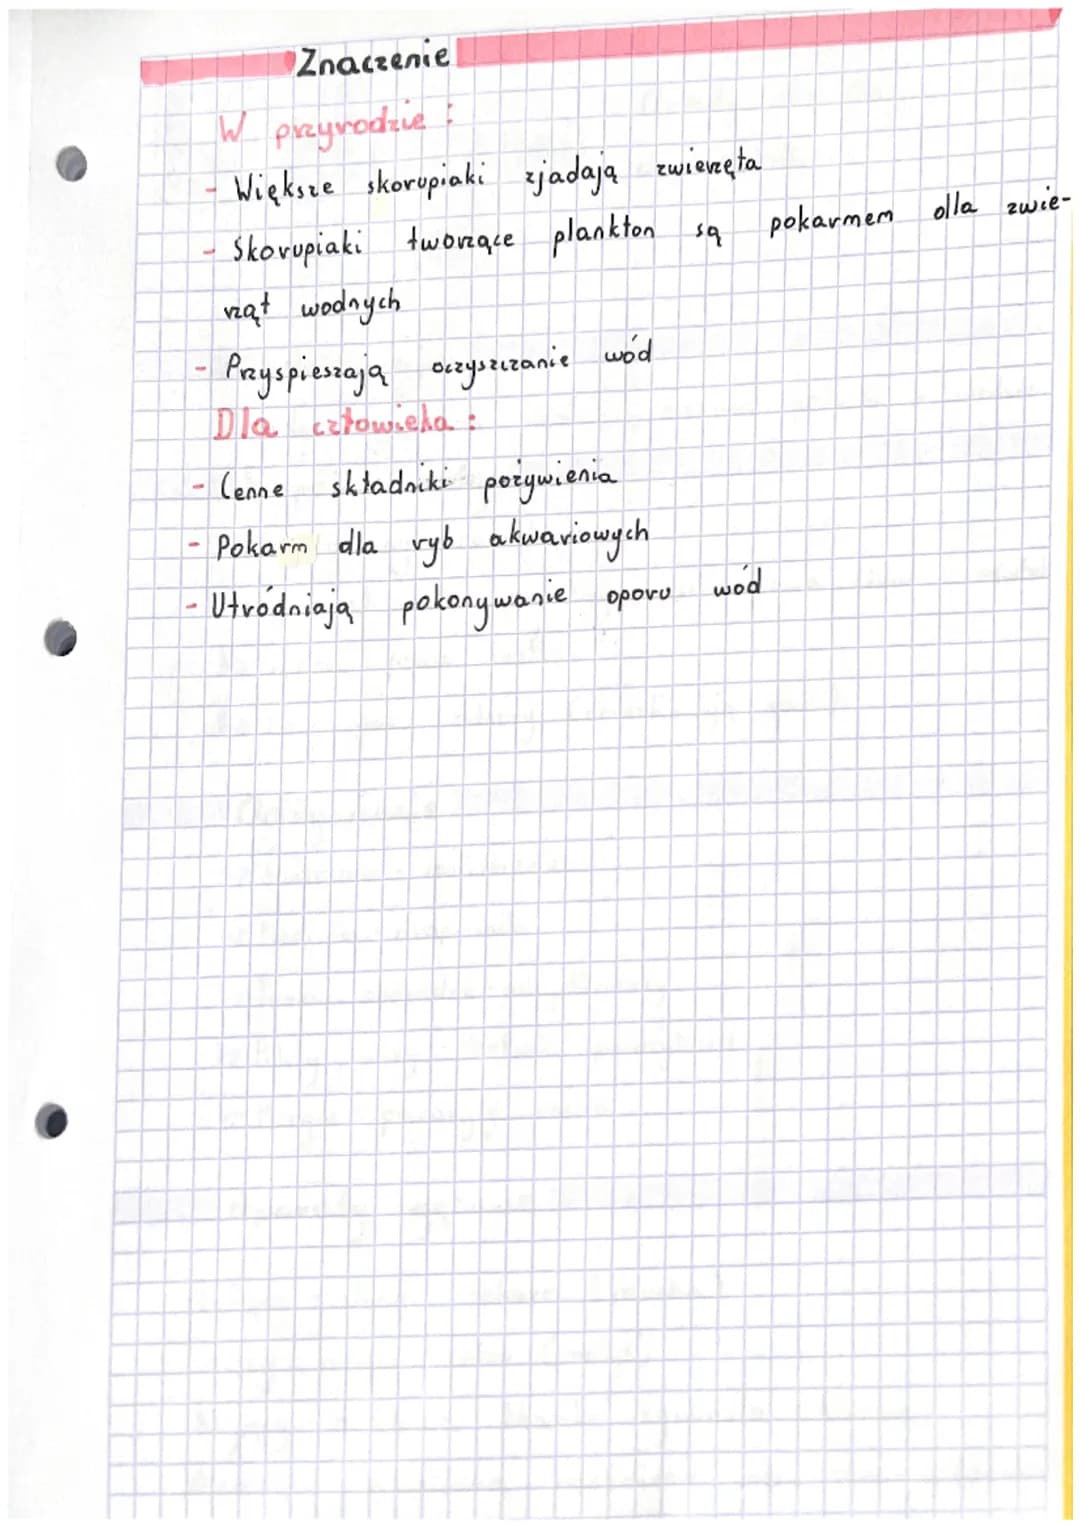 Znaczenie
W przyrodzie :
- Większe skorupiaki zjadają zwierzęta
- Skorupiaki tworzące plankton są pokarmem dla zwie-
rząt wodnych
- Przyspieszają oczyszczanie wód
Dla człowieka :
- Cenne składniki pożywienia
- Pokarm dla ryb akwariowych
- Utródniają pokonywanie oporu wód